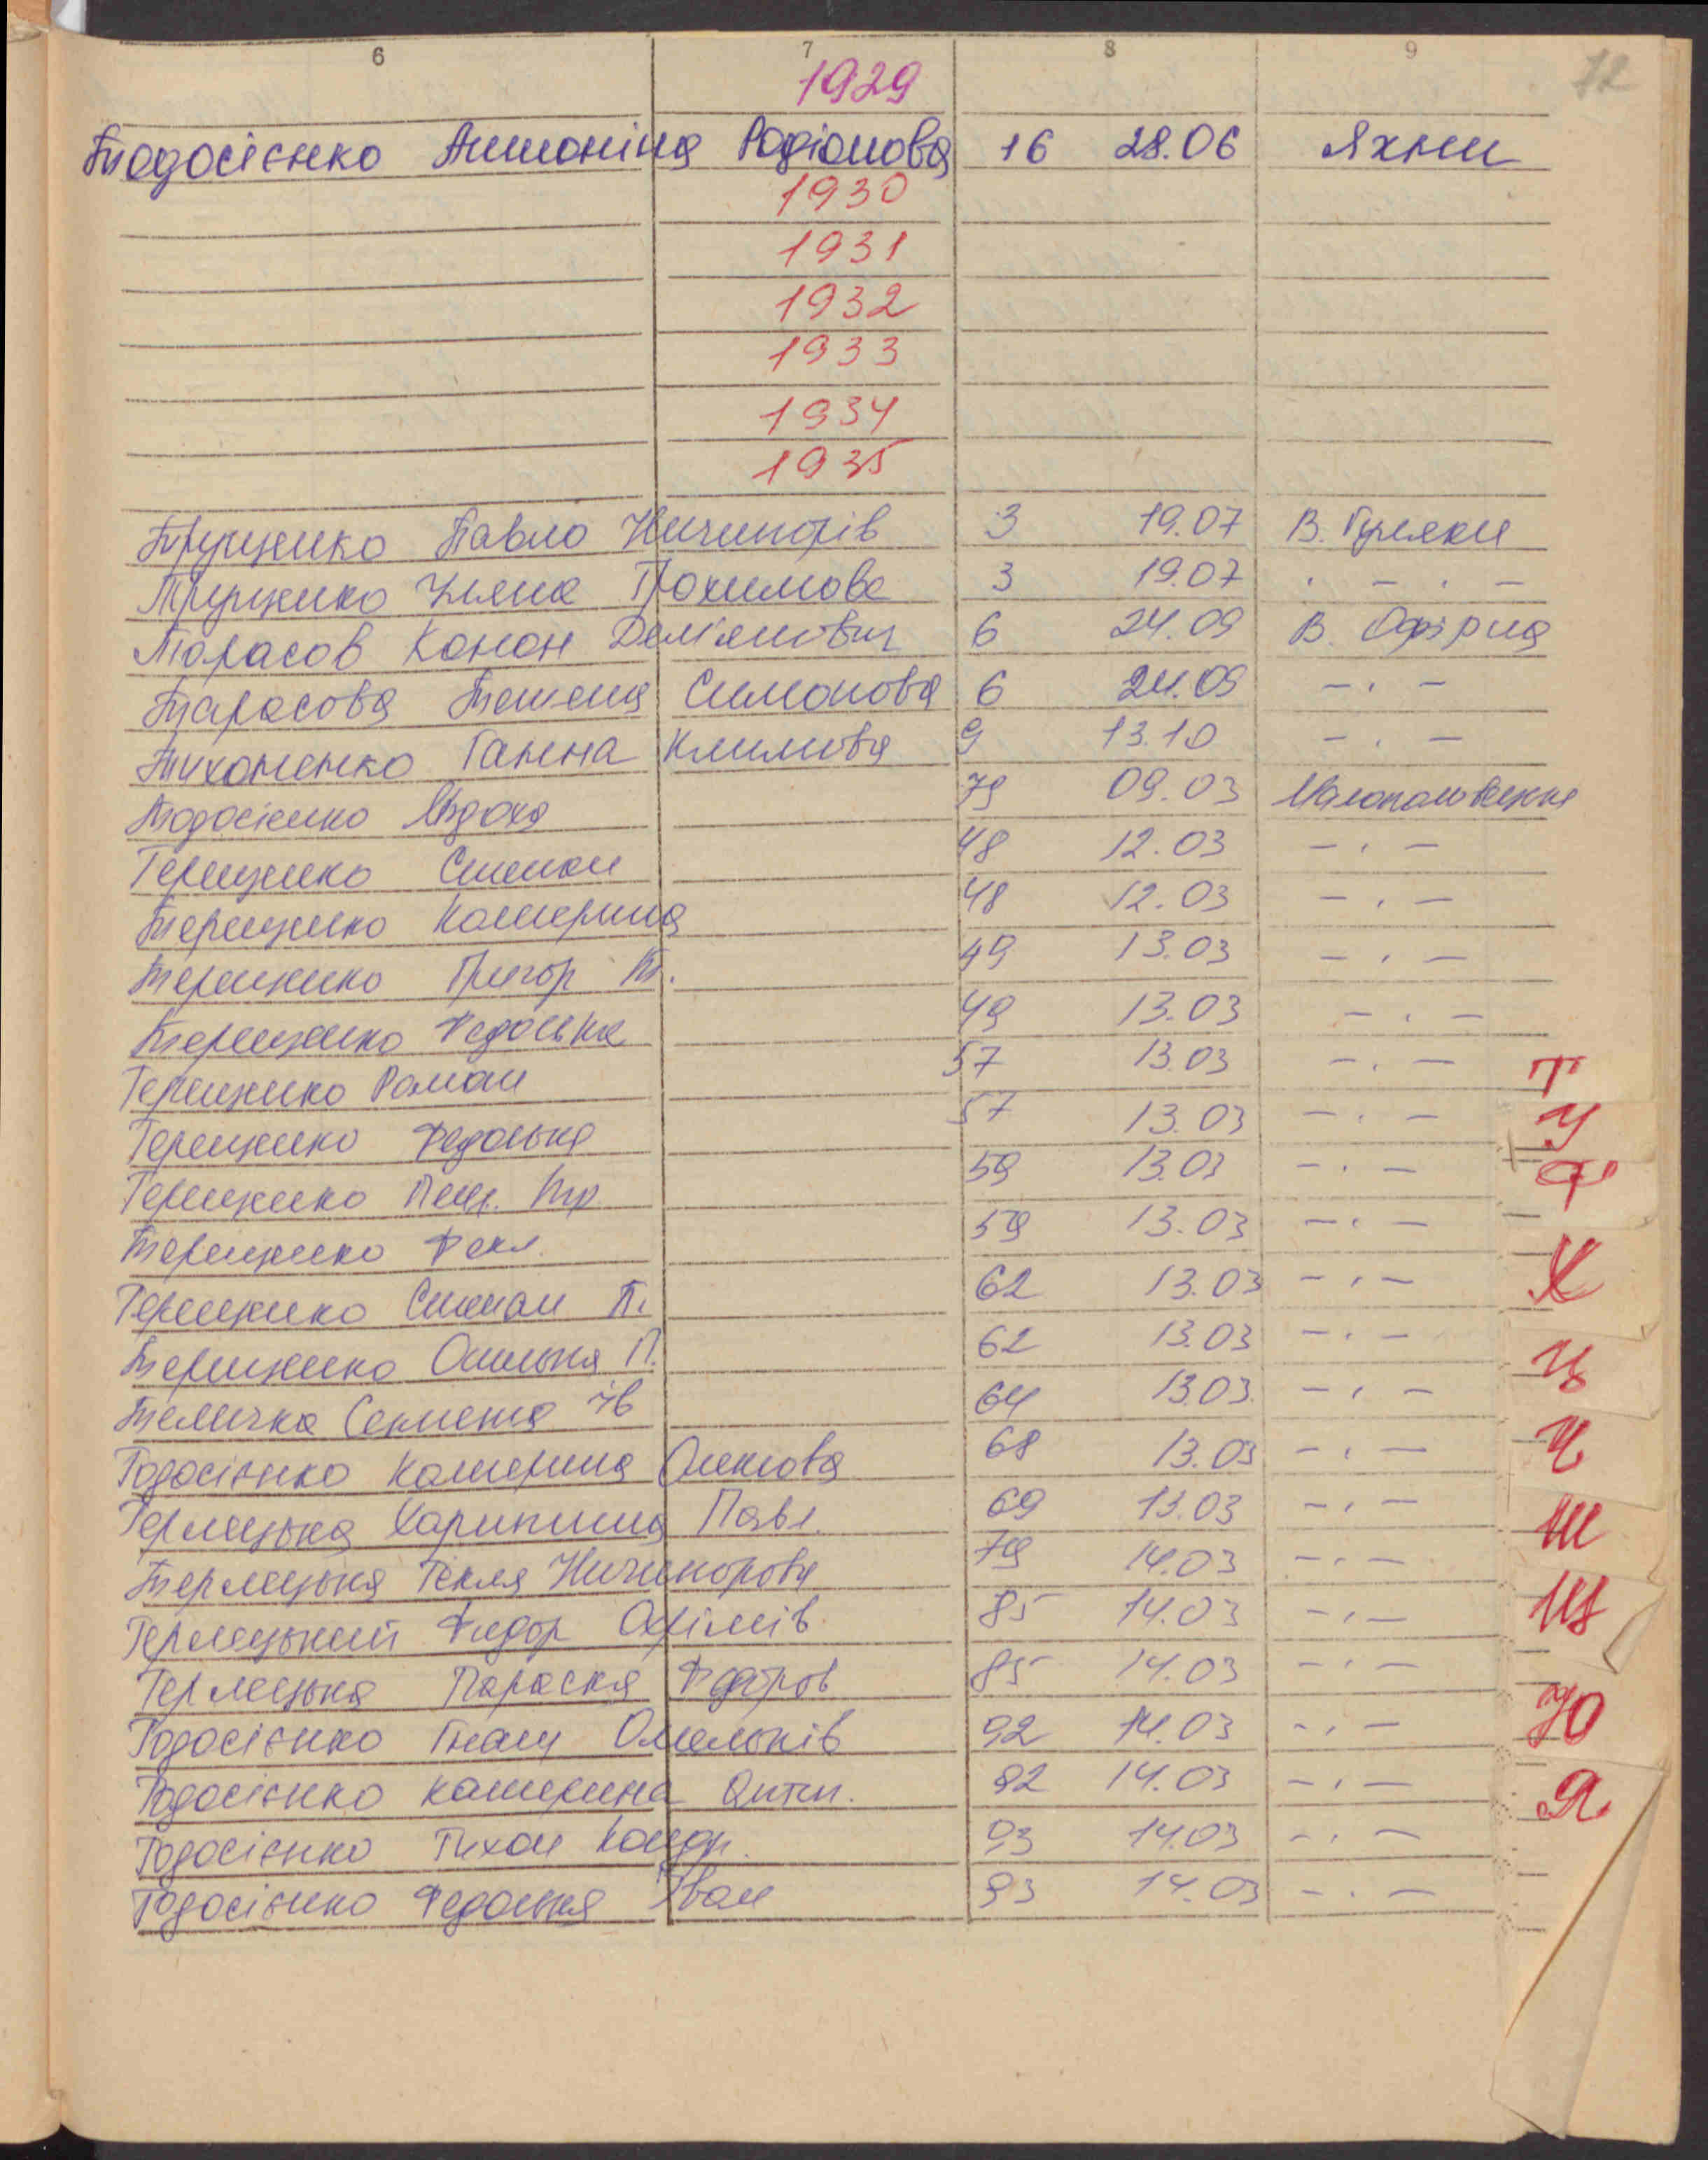 6 7 8 9 12
1929
Тодосієнко Антоніна Родіонова 16 28.06 Яхни
1930
1931
1932
1933
1934
1935
Трущенко Павло Ничипорів 3 19.07 В. Гуляки
Трущенко Уляна Трохимова 3 19.07 - . -
Тарасов Конон Дем'янович 6 24.09 В. Офірна
Тарасова Тетяна Симонова 6 24.09 - . -
Тихоненко Ганна Климова 9 13.10 - . -
Тодосієнко Явдоха 79 09.03 Малополовецьке
Терещенко Степан 48 12.03 - . -
Терещенко Катерина 48 12.03 - . -
Терещенко Григор Т. 49 13.03 - . -
Терещенко Федоська 49 13.03 - . -
Терещенко Роман 57 13.03 - . -
Терещенко Федоська 57 13.03 - . -
Терещенко Петр. 59 13.03 - . -
Терещенко Фекл. 59 13.03 - . -
Терещенко Степан Т. 62 13.03 - . -
Терещенко П. 62 13.03 - . -
Теличка Ів 64 13.03 - . -
Тодосієнко Катерина Олексова 68 13.03 - . -
Терлецька Харитина Павл. 69 13.03 - . -
Терлецька Текля Ничипорова 79 14.03 - . -
Терлецький Федор Охрімів 85 14.03 - . -
Терлецька Параска Федоров 85 14.03 - . -
Тодосієнко Гнат Омельків 92 14.03 - . -
Тодосієнко Катерина 92 14.03 - . -
Тодосієнко Тихон Кондр. 93 14.03 - . -
Тодосієнко Федоська Іван 93 14.03 - . -
Т
У
Ф
Х
Ц
Ч
Ш
Щ
Ю
Я